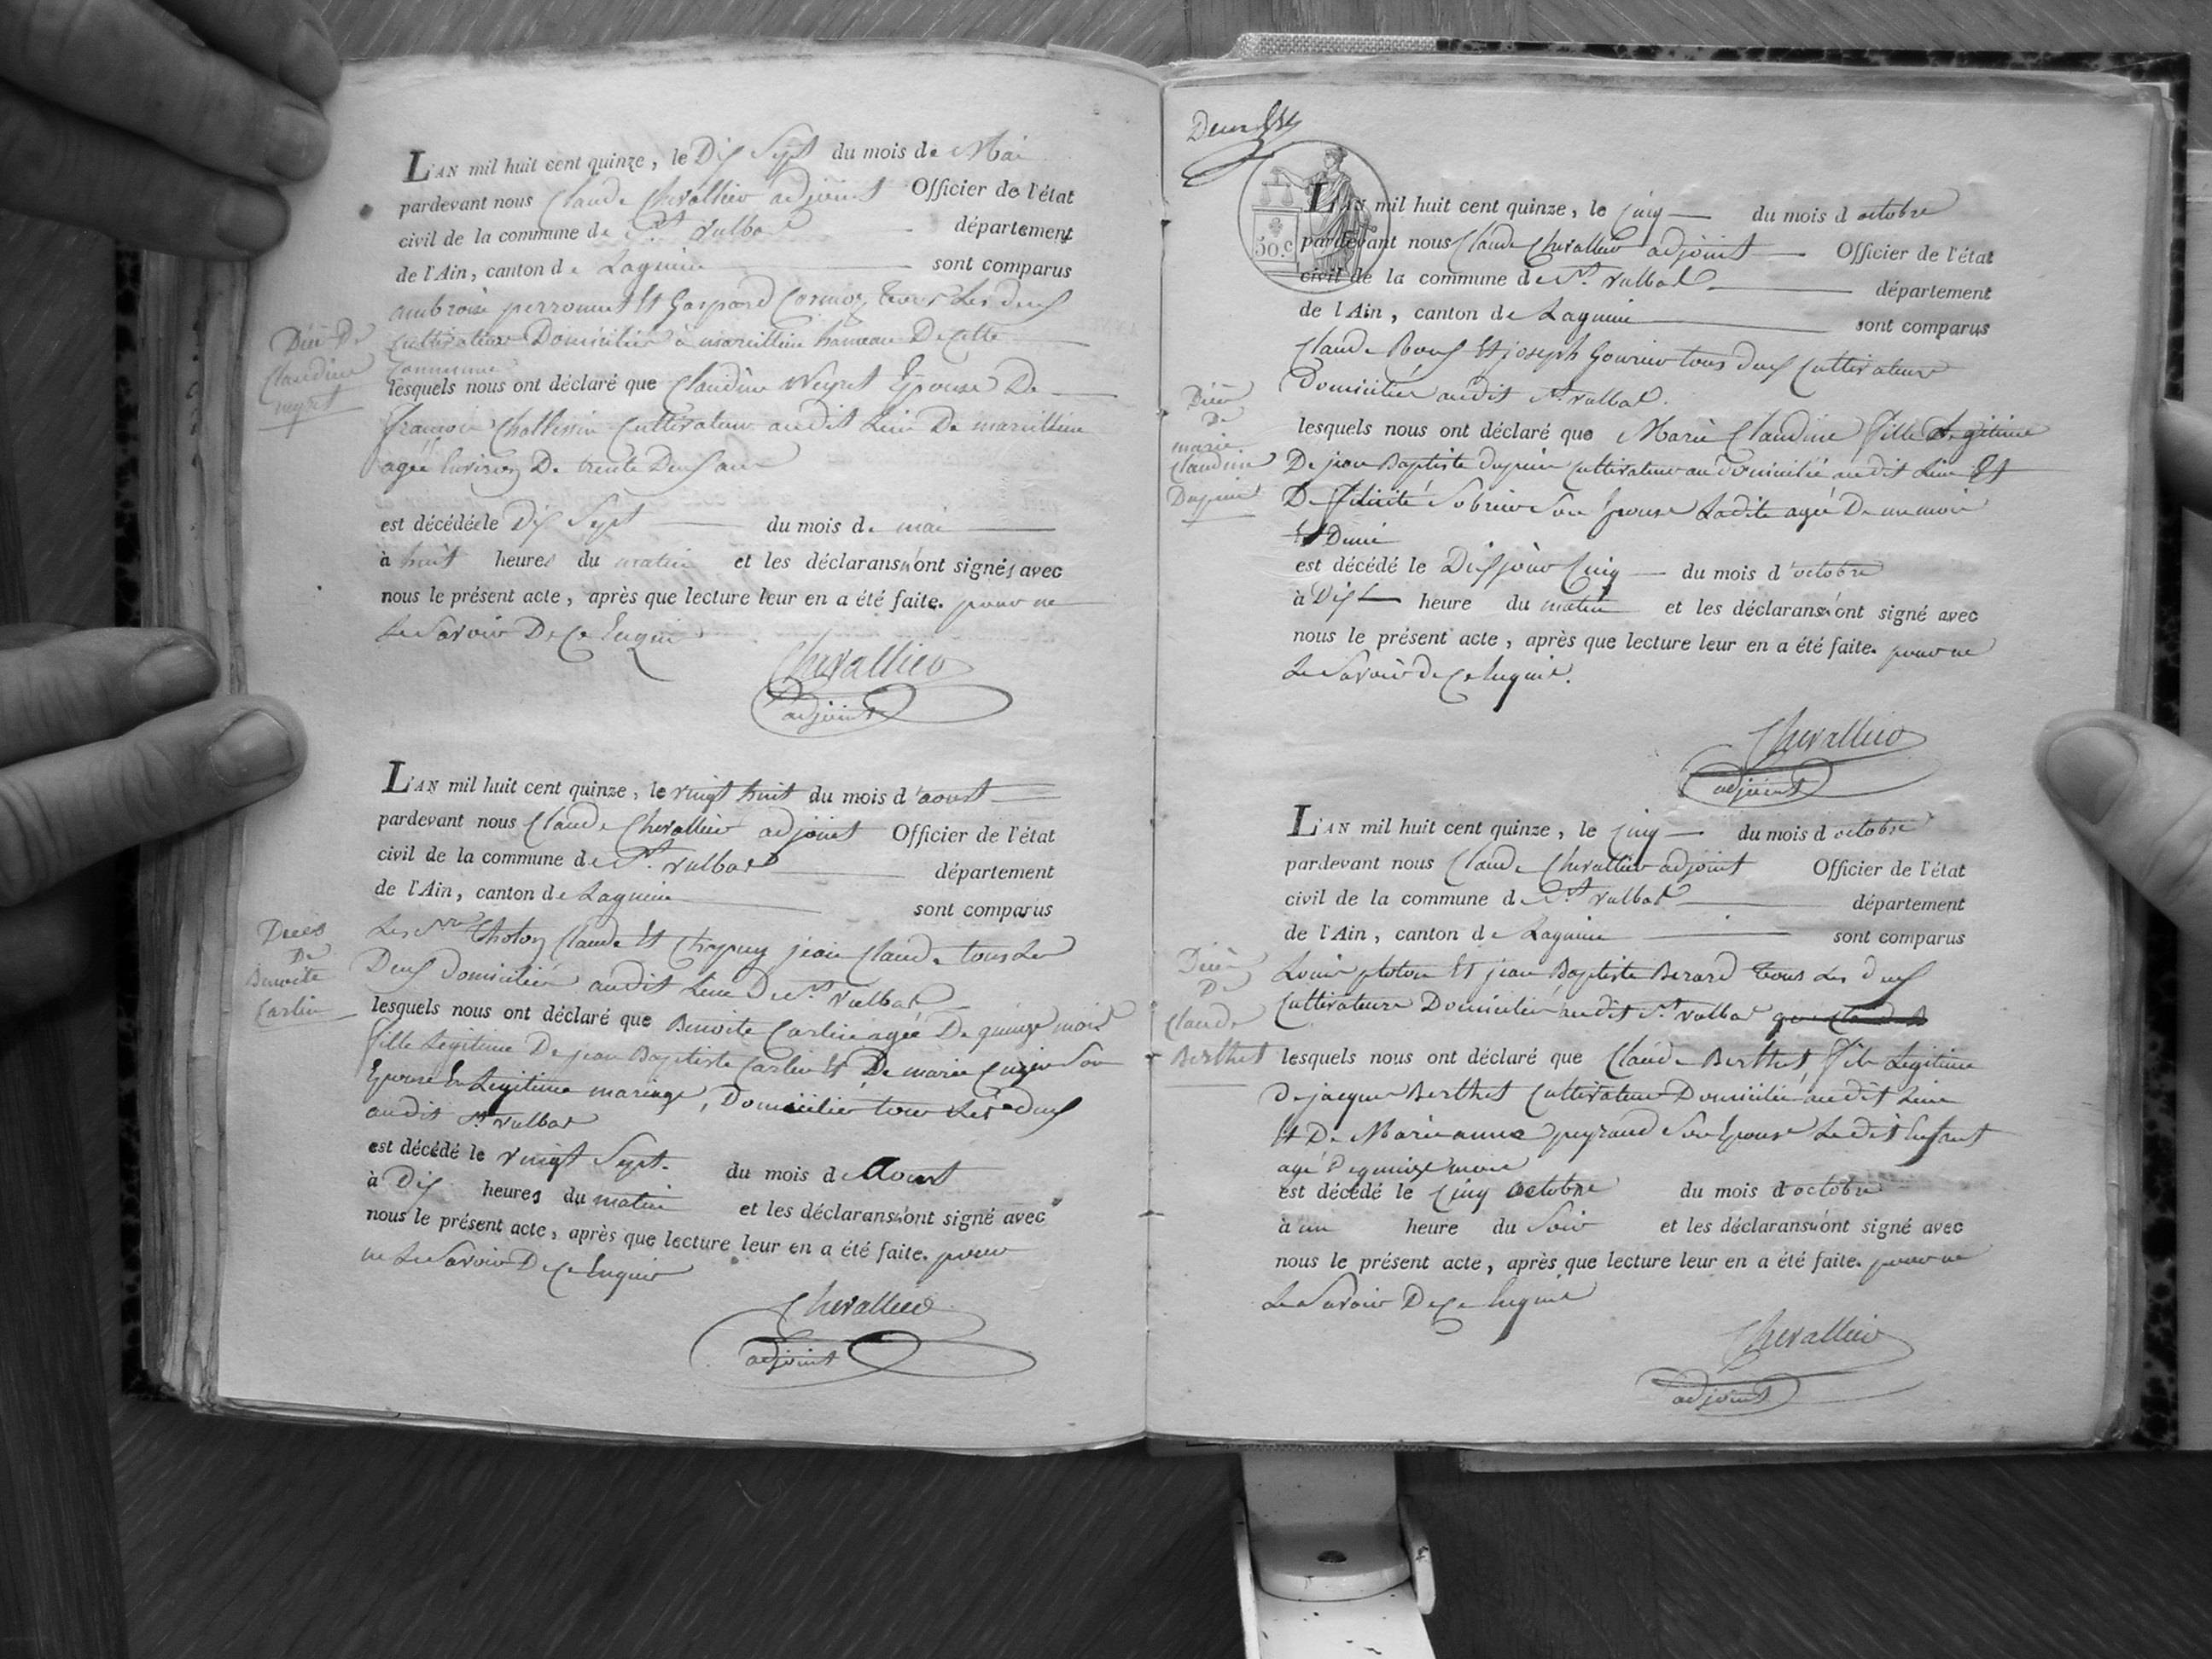 L'AN mil huit cent quinze, le Dix Sept du mois de Mai
pardevant nous Claude Chevallier adjoint Officier de l'état
civil de la commune de St. Vulbas département
de l'Ain, canton de Lagnieu sont comparus
ambroise perronnet Et Gaspard Cormoz tous Les deux
Cultivateur Domicilier à marcillieu hameau De Cette
Commune
Décè De
Claudine
neyret
lesquels nous ont déclaré que Claudine Neyret Epouse De
françois Challessin Cultivateur audit Lieu De marcillieu
agée Environ De trente Deux ans
est décédée le Dix Sept du mois de mai
à huit heures du matin et les déclarans n'ont signés avec
nous le présent acte, après que lecture leur en a été faite. pour ne
Le Savoir De Ce Enquis
Chevallier
adjoint
L'AN mil huit cent quinze, le vingt huit du mois d'aoust
pardevant nous Claude Chevallier adjoint Officier de l'état
civil de la commune de St. Vulbas département
de l'Ain, canton de Lagnieu sont comparus
Les Srs Tholon Claude Et Chapuy jean Claude tous Les
Deux domiciliés audit Lieu De St. Vulbas
Décès
De
Benoite
Carlin
lesquels nous ont déclaré que Benoite Carlin agée De quinze mois
fille Légitime De jean Baptiste Carlin Et De marie Cuzin Son
Epouse En Legitime mariage, Domicilier tous Les deux
audit St. Vulbas
est décédé le vingt Sept. du mois d'Aoust
à Dix heures du matin et les déclarans n'ont signé avec
nous le présent acte, après que lecture leur en a été faite. pour
ne Le Savoir De Ce Enquis
Chevallier
adjoint
50.c
L'AN mil huit cent quinze, le cinq du mois d octobre
pardevant nous Claude Chevallier adjoint Officier de l'état
civil de la commune de St. Vulbas département
de l'Ain, canton de Lagnieu sont comparus
Claude Et joseph tous deux Cultivateur
Domiciliés audit St. Vulbas.
Décè
De
marie
Claudine
Dupuis
lesquels nous ont déclaré que Marie Claudine fille Legitime
De jean Baptiste dupuis Cultivateur domicilié audit Lieu Et
De félicité Son Epouse Ladite agée De un mois
Et Demi
est décédé le Dit jour Cinq du mois d'octobre
à Dix heure du matin et les déclarans n'ont signé avec
nous le présent acte, après que lecture leur en a été faite. pour ne
Le Savoir de Ce Enquis.
Chevallier
adjoint
L'AN mil huit cent quinze, le cinq du mois d octobre
pardevant nous Claude Chevallier adjoint Officier de l'état
civil de la commune de St. Vulbas département
de l'Ain, canton de Lagnieu sont comparus
Louis ploton Et jean Baptiste Berard tous Les deux
Cultivateurs Domicilier audit St. Vulbas
Décè
De
Claude
Berthet
lesquels nous ont déclaré que Claude Berthet, fils Legitime
De jacque Berthet Cultivateur Domicilié audit Lieu
Et De Marianne peyraud Son Epouse Le dit Enfant
agé De quinze mois
est décédé le cinq octobre du mois d octobre
à un heure du Soir et les déclarans n'ont signé avec
nous le présent acte, après que lecture leur en a été faite. pour ne
Le Savoir De Ce Enquis
Chevallier
adjoint